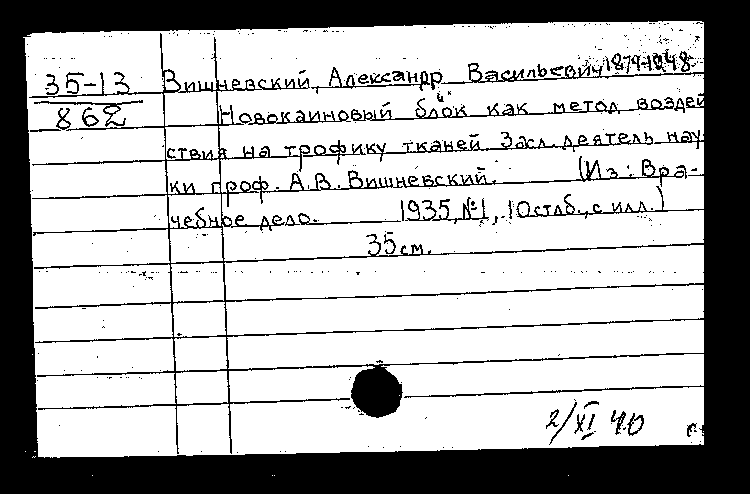 35-13
862
Вишневский, Александр Васильевич 1874-1948
Новокаиновый блок как метод воздей
ствия на трофику тканей. Засл. деятель нау-
ки проф. А.В. Вишневский. (Из: Вра-
чебное дело. 1935, №1, 10стлб., с илл.)
35см.
2/XI 40